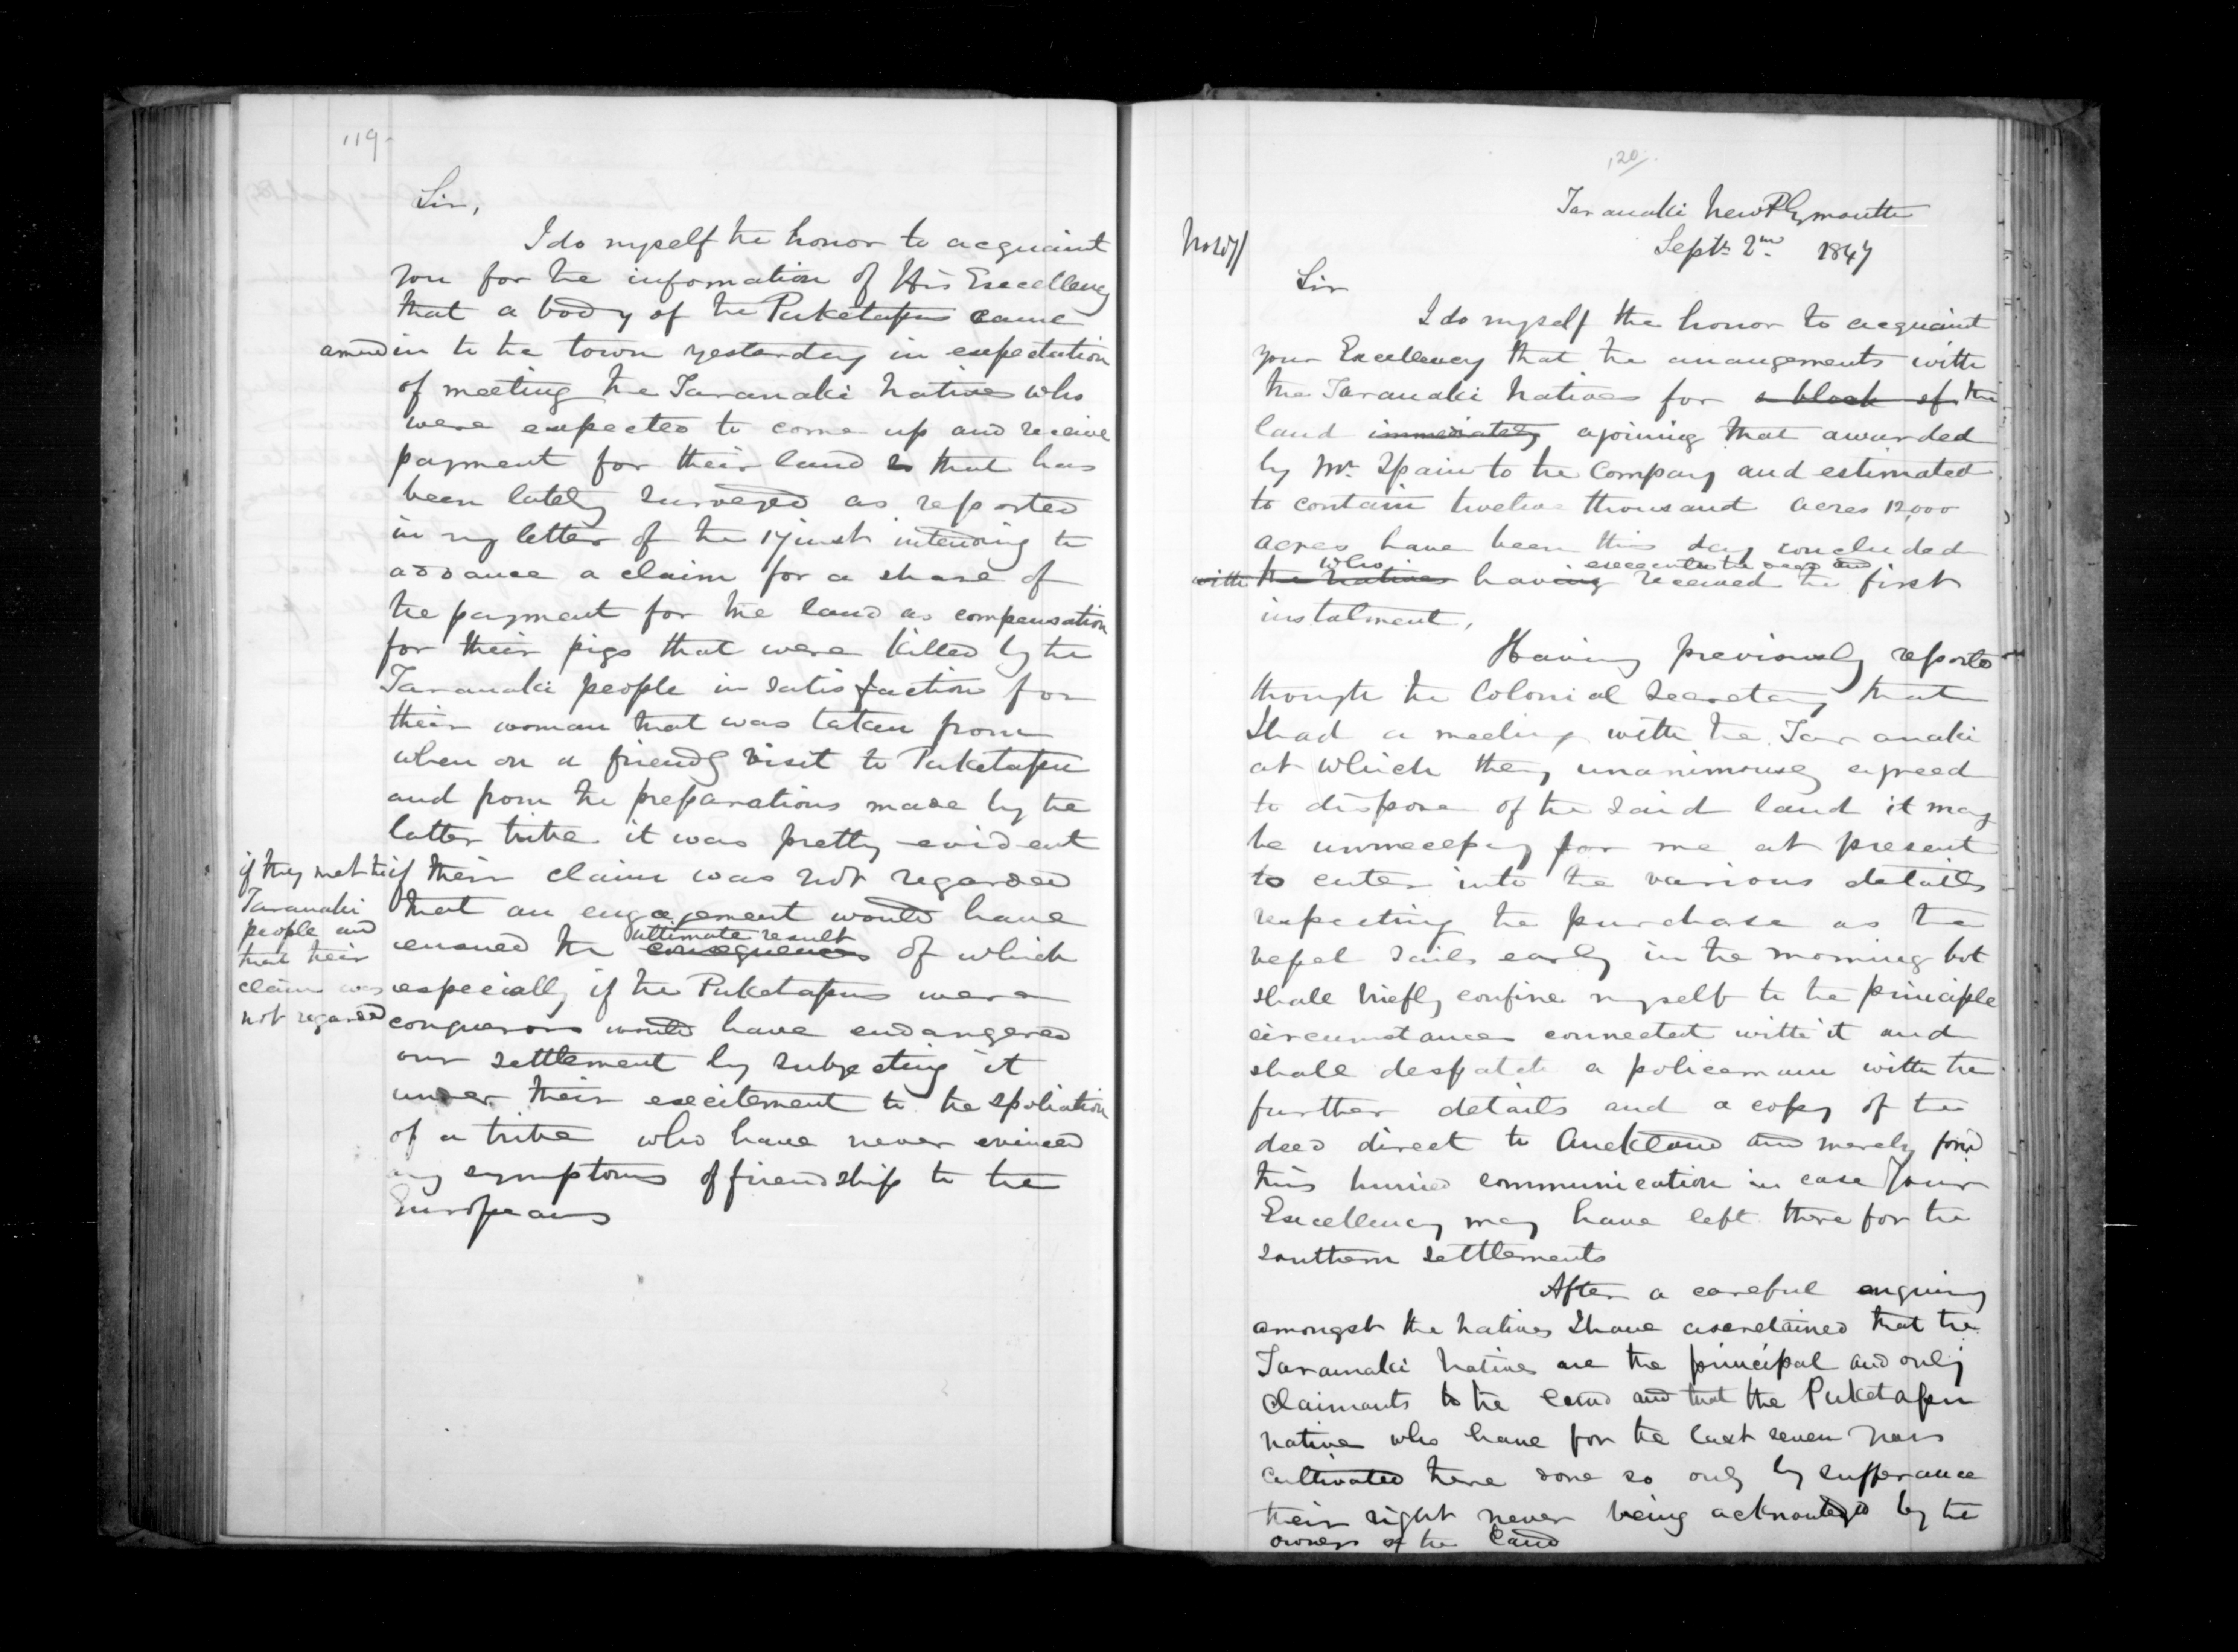 119
Sir,
I do myself the honor to acquaint
you for the infomation of His Excellency
that a body of the Puketapus came
armed in to the town yesterday in expectation
of meeting the Taranaki Natives who
were expected to come up and receive
payment for their land that has
been lately surveyed as reported
in my letter of the 17 inst intending to
advance a claim for a share of
the payment for the land as compensation
for their pigs that were killed by the
Taranaki people in satisfaction for
their woman that was taken from
when on a friendly visit to Puketapu
and from the preparations made by the
latter tribe it was pretty evident
if their claim was not regarded
if they met the
Taranaki
people and
that their
claim was
not regarded
that an engagement would have
ensued the consequences of which
ultimate result
especially if the Puketapus were
conquerors would have endangered
our settlement by subjecting it
under their excitement to the spoliation
of a tribe who have never evinced
any symptoms of friendship to the
Europeans
120
Taranaki New Plymouth
Septr 2nd 1847
Sir
I do myself the honor to acquaint
your Excellency that the arrangements with
the Taranaki Natives for a block of the
land immediately ajoining that awarded
by Mr Spain to the Company and estimated
to contain twelve thousand acres 12,000
acres have been this day concluded
who executed the deed and
with the natives having received the first
instalment,
Having previously reported
though the Colonial Secretary that
I had a meeting with the Taranaki
at which they unanimously agreed
to dispose of the said land it may
be unnecessary for me at present
to enter into the various details
respecting the purchase as the
vessel sails early in the morning but
shall briefly confine myself to the principle
circumstances connected with it and
shall despatch a policeman with the
further details and a copy of the
deed direct to Auckland and merely forwd
this hurried communication in case Your
Excellency may have left there for the
southern settlements
After a careful enquiry
amongst the natives I have ascertained that the
Taranaki Natives are the principal and only
claimants to the land and that the Puketapu
natives who have for the last seven years
cultivated there done so only by sufferance
their right never being acknowledged by the
owners of the land